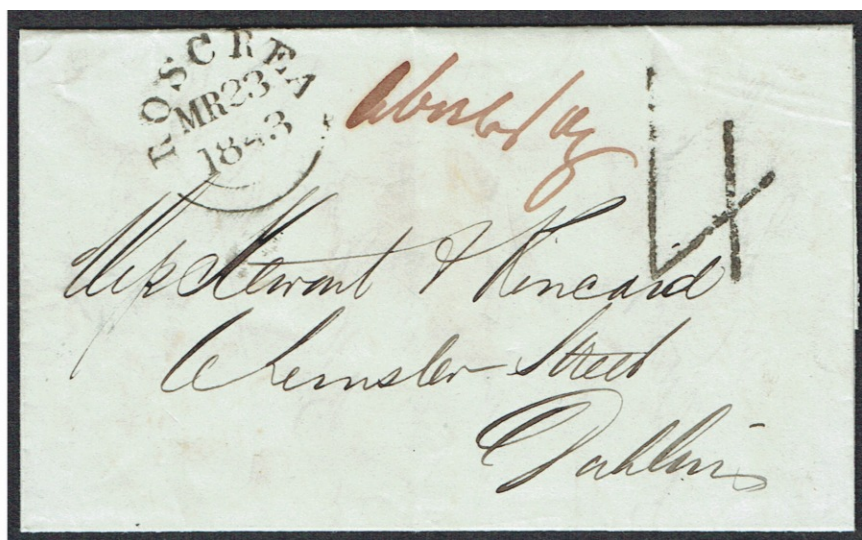 ROSCREA
MR 23
1843
4
Messrs Stewart & Kincaid
6 Leinster Street
Dublin